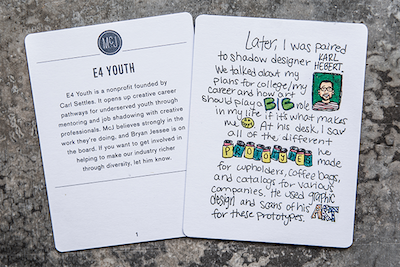 McJ
E4 YOUTH
E4 Youth is a nonprofit founded by
Carl Settles. It opens up creative career
pathways for underserved youth through
mentoring and job shadowing with creative
professionals. McJ believes strongly in the
work they're doing, and Bryan Jessee is on
the board. If you want to get involved in
helping to make our industry richer
through diversity, let him know.
1
Later, I was paired
to shadow designer KARL
HEBERT.
We talked about my
plans for college/my
career and how art
should play a BIG role
in my life if it's what makes
me At his desk, I saw
all of the different
PROTOTYPES he made
for cupholders, coffee bags,
and catalogs for various
companies. He used graphic
design and scans of his ART
for these prototypes.